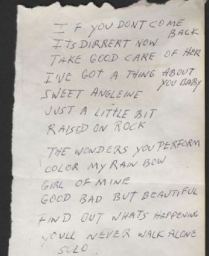 IF YOU DONT COME BACK
ITS DIRRERT NOW
TAKE GOOD CARE OF HER
I'VE GOT A THING ABOUT YOU BABY
SWEET ANGLEINE
JUST A LITTLE BIT
RAISED ON ROCK
THE WONDERS YOU PERFORM
COLOR MY RAIN BOW
GIRL OF MINE
GOOD BAD BUT BEAUTIFUL
FIND OUT WHATS HAPPENING
YOULL NEVER WALK ALONE
SOLO